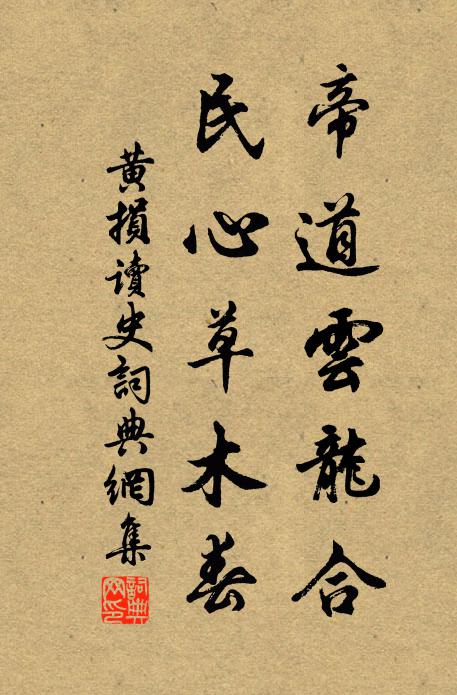 帝道雲龍合
民心草木春
黄損讀史詞典網集
詞典
网印